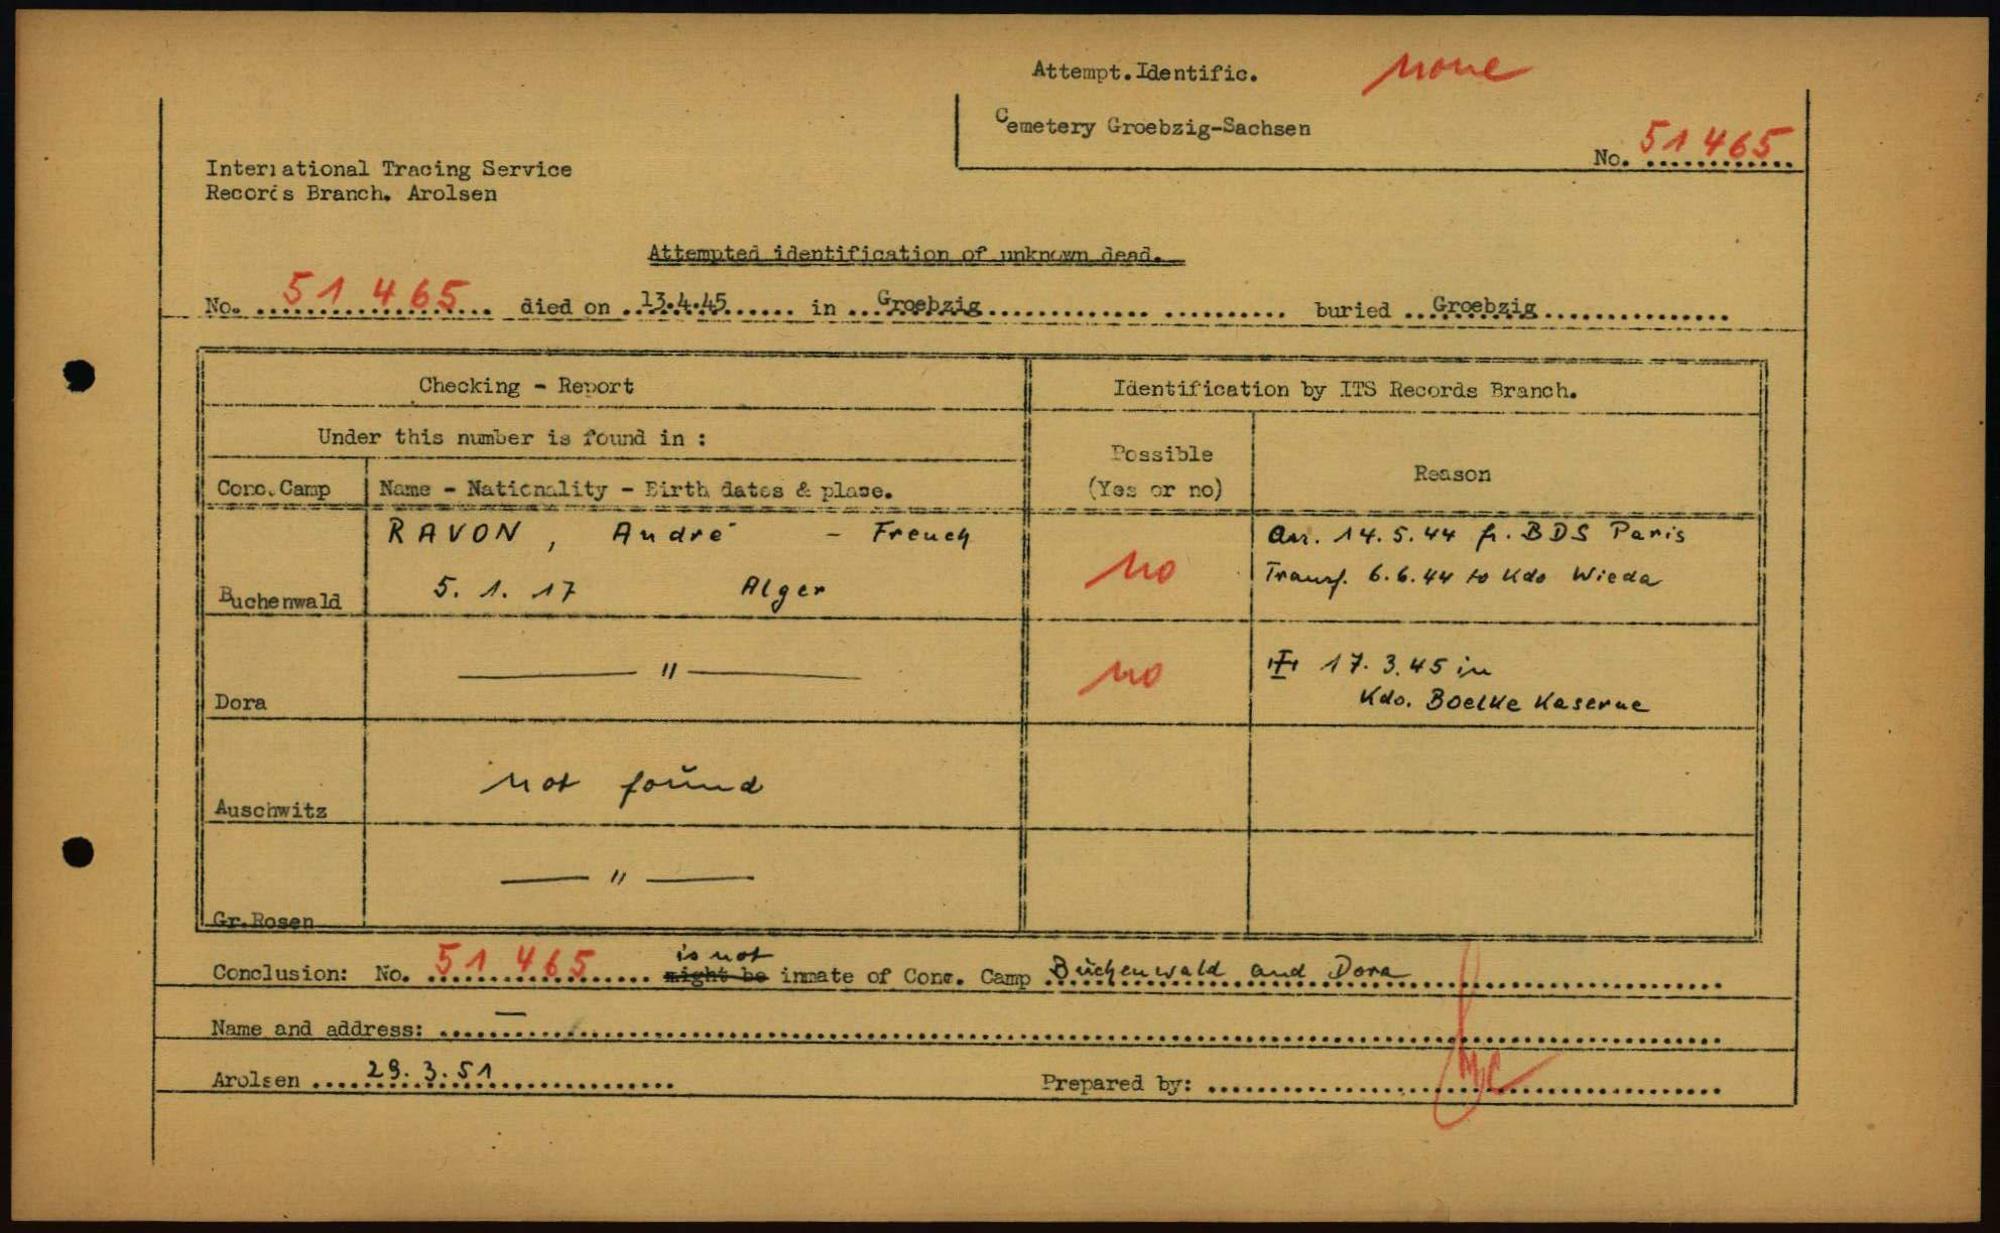 Attempt.Identific. none
Cemetery Groebzig-Sachsen
No. 51 465
International Tracing Service
Records Branch. Arolsen
Attempted identification of unknown dead.
No. 51 465 died on 13.4.45 in Groebzig buried Groebzig
Checking - Report
Identification by ITS Records Branch.
Under this number is found in :
Possible
(Yes or no)
Reason
Conc.Camp Name - Nationality - Birth dates & place.
RAVON, André - French
5. 1. 17 Alger
Buchenwald
no
Arr. 14.5.44 fr. BDS Paris
Transf. 6.6.44 to Kdo Wieda
Dora
— " —
no
17.3.45 in
Kdo. Boelke Kaserne
Auschwitz
not found
Gr.Rosen
— " —
Conclusion: No. 51 465 might be is not inmate of Conc. Camp Buchenwald and Dora
Name and address: —
Arolsen 29.3.51 Prepared by: